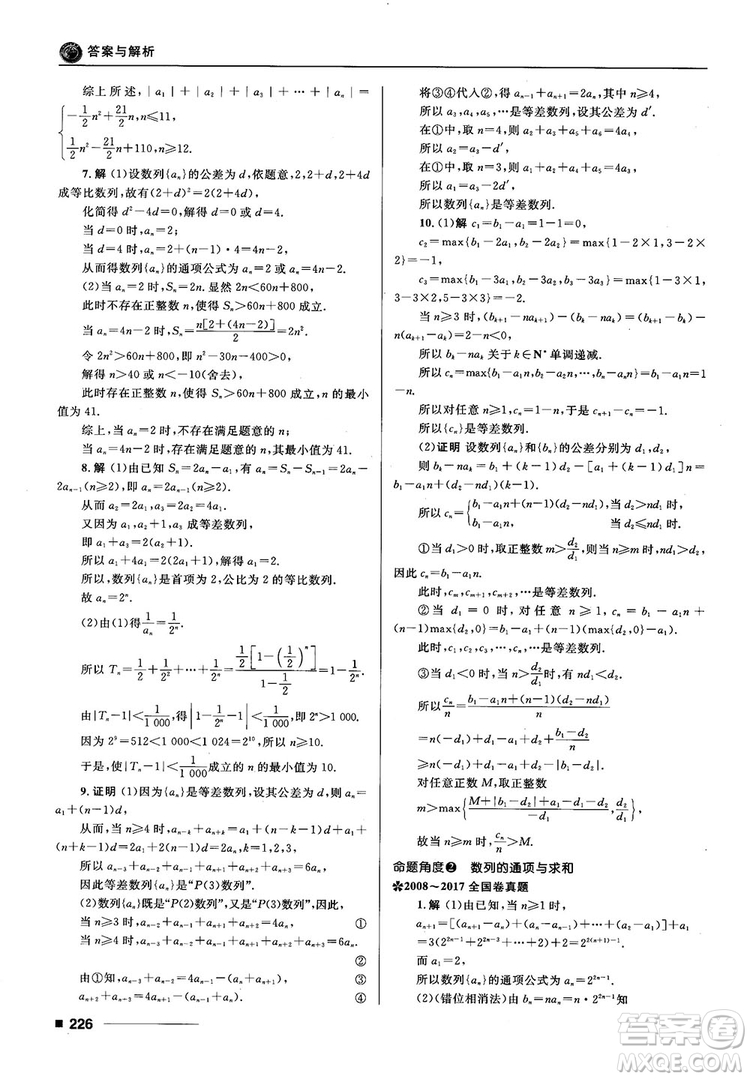 答案与解析
综上所述，|a₁|+|a₂|+|a₃|+…+|aₙ|=
{-1/2n²+21/2n,n≤11,
1/2n²-21/2n+110,n≥12.
7.解 (1)设数列{aₙ}的公差为d,依题意,2,2+d,2+4d
成等比数列,故有(2+d)²=2(2+4d),
化简得d²-4d=0,解得d=0或d=4.
当d=0时,aₙ=2;
当d=4时,aₙ=2+(n-1)·4=4n-2,
从而得数列{aₙ}的通项公式为aₙ=2或aₙ=4n-2.
(2)当aₙ=2时,Sₙ=2n.显然2n<60n+800,
此时不存在正整数n,使得Sₙ>60n+800成立.
当aₙ=4n-2时,Sₙ=n[2+(4n-2)]/2=2n².
令2n²>60n+800,即n²-30n-400>0,
解得n>40或n<-10(舍去),
此时存在正整数n,使得Sₙ>60n+800成立,n的最小
值为41.
综上,当aₙ=2时,不存在满足题意的n;
当aₙ=4n-2时,存在满足题意的n,其最小值为41.
8.解 (1)由已知Sₙ=2aₙ-a₁,有aₙ=Sₙ-Sₙ₋₁=2aₙ-
2aₙ₋₁(n≥2),即aₙ=2aₙ₋₁(n≥2).
从而a₂=2a₁,a₃=2a₂=4a₁.
又因为a₁,a₂+1,a₃成等差数列,
即a₁+a₃=2(a₂+1).
所以a₁+4a₁=2(2a₁+1),解得a₁=2.
所以,数列{aₙ}是首项为2,公比为2的等比数列.
故aₙ=2ⁿ.
(2)由(1)得1/aₙ=1/2ⁿ.
所以Tₙ=1/2+1/2²+…+1/2ⁿ=1/2[1-(1/2)ⁿ]/(1-1/2)=1-1/2ⁿ.
由|Tₙ-1|<1/1 000,得|1-1/2ⁿ-1|<1/1 000,即2ⁿ>1 000.
因为2⁹=512<1 000<1 024=2¹⁰,所以n≥10.
于是,使|Tₙ-1|<1/1 000成立的n的最小值为10.
9.证明 (1)因为{aₙ}是等差数列,设其公差为d,则aₙ=
a₁+(n-1)d,
从而,当n≥4时,aₙ₋ₖ+aₙ₊ₖ=a₁+(n-k-1)d+a₁+
(n+k-1)d=2a₁+2(n-1)d=2aₙ,k=1,2,3,
所以aₙ₋₃+aₙ₋₂+aₙ₋₁+aₙ₊₁+aₙ₊₂+aₙ₊₃=6aₙ,
因此等差数列{aₙ}是“P(3)数列”.
(2)数列{aₙ}既是“P(2)数列”,又是“P(3)数列”,因此,
当n≥3时,aₙ₋₂+aₙ₋₁+aₙ₊₁+aₙ₊₂=4aₙ, ①
当n≥4时,aₙ₋₃+aₙ₋₂+aₙ₋₁+aₙ₊₁+aₙ₊₂+aₙ₊₃=6aₙ.
②
由①知,aₙ₋₃+aₙ₋₂=4aₙ₋₁-(aₙ+aₙ₊₁), ③
aₙ₊₂+aₙ₊₃=4aₙ₊₁-(aₙ₋₁+aₙ). ④
226
将③④代入②,得aₙ₋₁+aₙ₊₁=2aₙ,其中n≥4,
所以a₃,a₄,a₅,…是等差数列,设其公差为d′.
在①中,取n=4,则a₂+a₃+a₅+a₆=4a₄,
所以a₂=a₃-d′,
在①中,取n=3,则a₁+a₂+a₄+a₅=4a₃,
所以a₁=a₃-2d′,
所以数列{aₙ}是等差数列.
10.(1)解 c₁=b₁-a₁=1-1=0,
c₂=max{b₁-2a₁,b₂-2a₂}=max{1-2×1,3-2×
2}=-1,
c₃=max{b₁-3a₁,b₂-3a₂,b₃-3a₃}=max{1-3×1,
3-3×2,5-3×3}=-2.
当n≥3时,(bₖ₊₁-naₖ₊₁)-(bₖ-naₖ)=(bₖ₊₁-bₖ)-
n(aₖ₊₁-aₖ)=2-n<0,
所以bₖ-naₖ关于k∈N*单调递减.
所以cₙ=max{b₁-a₁n,b₂-a₂n,…,bₙ-aₙn}=b₁-
a₁n=1-n.
所以对任意n≥1,cₙ=1-n,于是cₙ₊₁-cₙ=-1,
所以{cₙ}是等差数列.
(2)证明 设数列{aₙ}和{bₙ}的公差分别为d₁,d₂,
则bₖ-naₖ=b₁+(k-1)d₂-[a₁+(k-1)d₁]n=
b₁-a₁n+(d₂-nd₁)(k-1).
所以cₙ={b₁-a₁n+(n-1)(d₂-nd₁),当d₂>nd₁时,
b₁-a₁n, 当d₂≤nd₁时.
①当d₁>0时,取正整数m>d₂/d₁,则当n≥m时,nd₁>d₂,
因此cₙ=b₁-a₁n.
此时,cₘ,cₘ₊₁,cₘ₊₂,…是等差数列.
②当d₁=0时,对任意n≥1,cₙ=b₁-a₁n+
(n-1)max{d₂,0}=b₁-a₁+(n-1)(max{d₂,0}-a₁).
此时,c₁,c₂,c₃,…,cₙ,…是等差数列.
③当d₁<0时,当n>d₂/d₁时,有nd₁<d₂.
所以cₙ/n=[b₁-a₁n+(n-1)(d₂-nd₁)]/n
=n(-d₁)+d₁-a₁+d₂+(b₁-d₂)/n
≥n(-d₁)+d₁-a₁+d₂-|b₁-d₂|.
对任意正数M,取正整数
m>max{(M+|b₁-d₂|+a₁-d₁-d₂)/(-d₁),d₂/d₁},
故当n≥m时,cₙ/n>M.
命题角度❷ 数列的通项与求和
✽2008～2017全国卷真题
1.解 (1)由已知,当n≥1时,
aₙ₊₁=[(aₙ₊₁-aₙ)+(aₙ-aₙ₋₁)+…+(a₂-a₁)]+a₁
=3(2²ⁿ⁻¹+2²ⁿ⁻³+…+2)+2=2²⁽ⁿ⁺¹⁾⁻¹.
而a₁=2,
所以数列{aₙ}的通项公式为aₙ=2²ⁿ⁻¹.
(2)(错位相消法)由bₙ=naₙ=n·2²ⁿ⁻¹知
答案圈